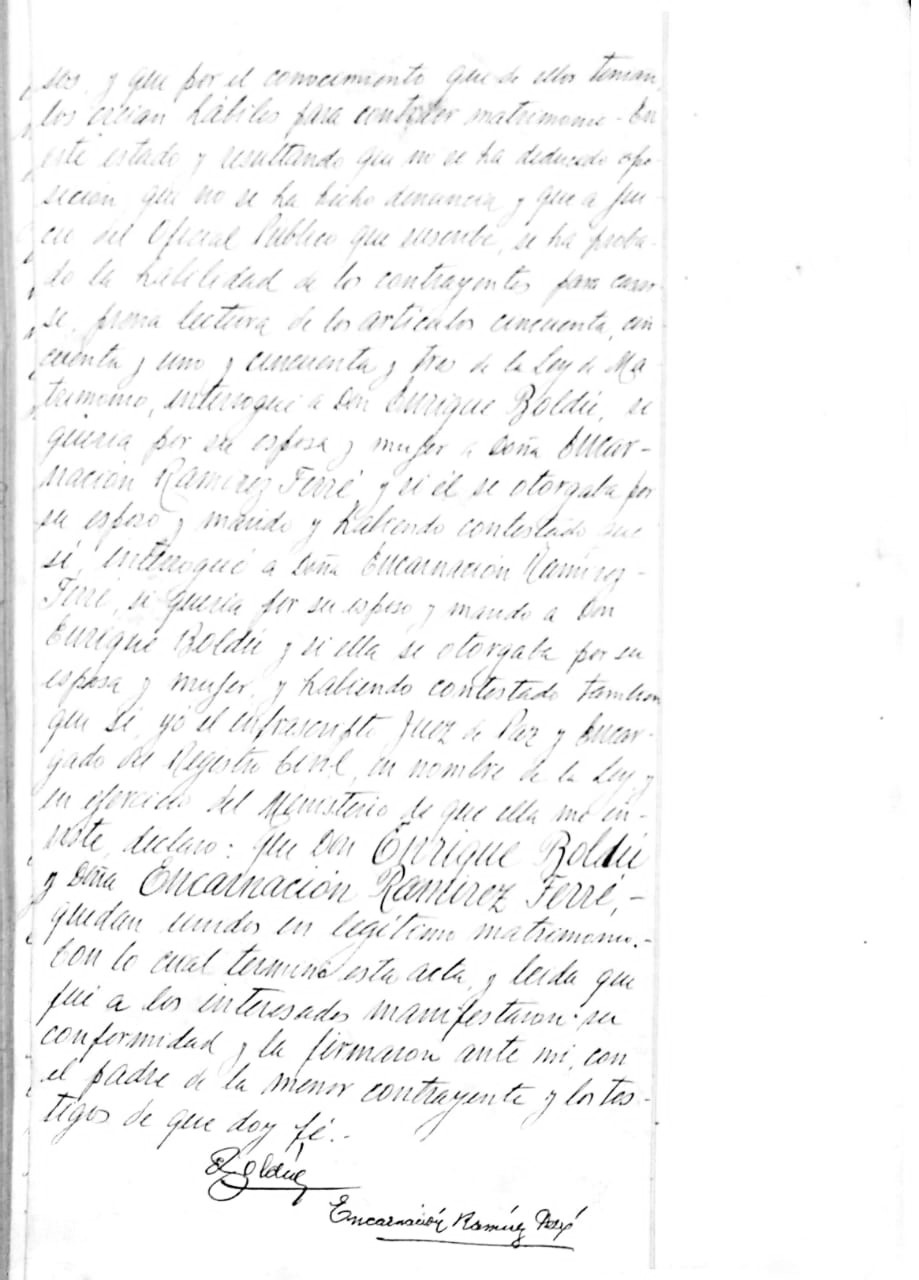 sos, y que por el conocimiento que de ellos tenian
los creian hábiles para contraer matrimonio.- En
este estado y resultando que no se ha deducido opo-
sicion, que no se ha hecho denuncia y que a jui-
cio del Oficial Publico que suscribe, se ha proba-
do la habilidad de los contrayentes para casar-
se, prévia lectura de los articulos cincuenta, cin-
cuenta y uno y cincuenta y tres de la Ley de Ma-
trimonio, interrogué a Don Enrique Boldú, si
queria por su esposa y mujer a Doña Encar-
nación Ramirez Ferré, y si él se otorgaba por
su esposo y marido y habiendo contestado que
sí, interrogué a Doña Encarnación Ramirez-
Ferré, si queria por su esposo y marido a Don
Enrique Boldú y si ella se otorgaba por su
esposa y mujer, y habiendo contestado tambien
que sí, yó el infrascripto Juez de Paz y Encar-
gado del Registro Civil, en nombre de la Ley, y
en ejercicio del Ministerio de que ella me in-
viste, declaro: que Don Enrique Boldú
y Doña Encarnación Ramirez Ferré,-
quedan unidos en legítimo matrimonio.-
Con lo cual terminó esta acta, y leida que
fué a los interesados manifestaron su
conformidad y la firmaron ante mí, con
el padre de la menor contrayente y los tes-
tigos de que doy fé.-
Boldú
Encarnación Ramírez Ferré